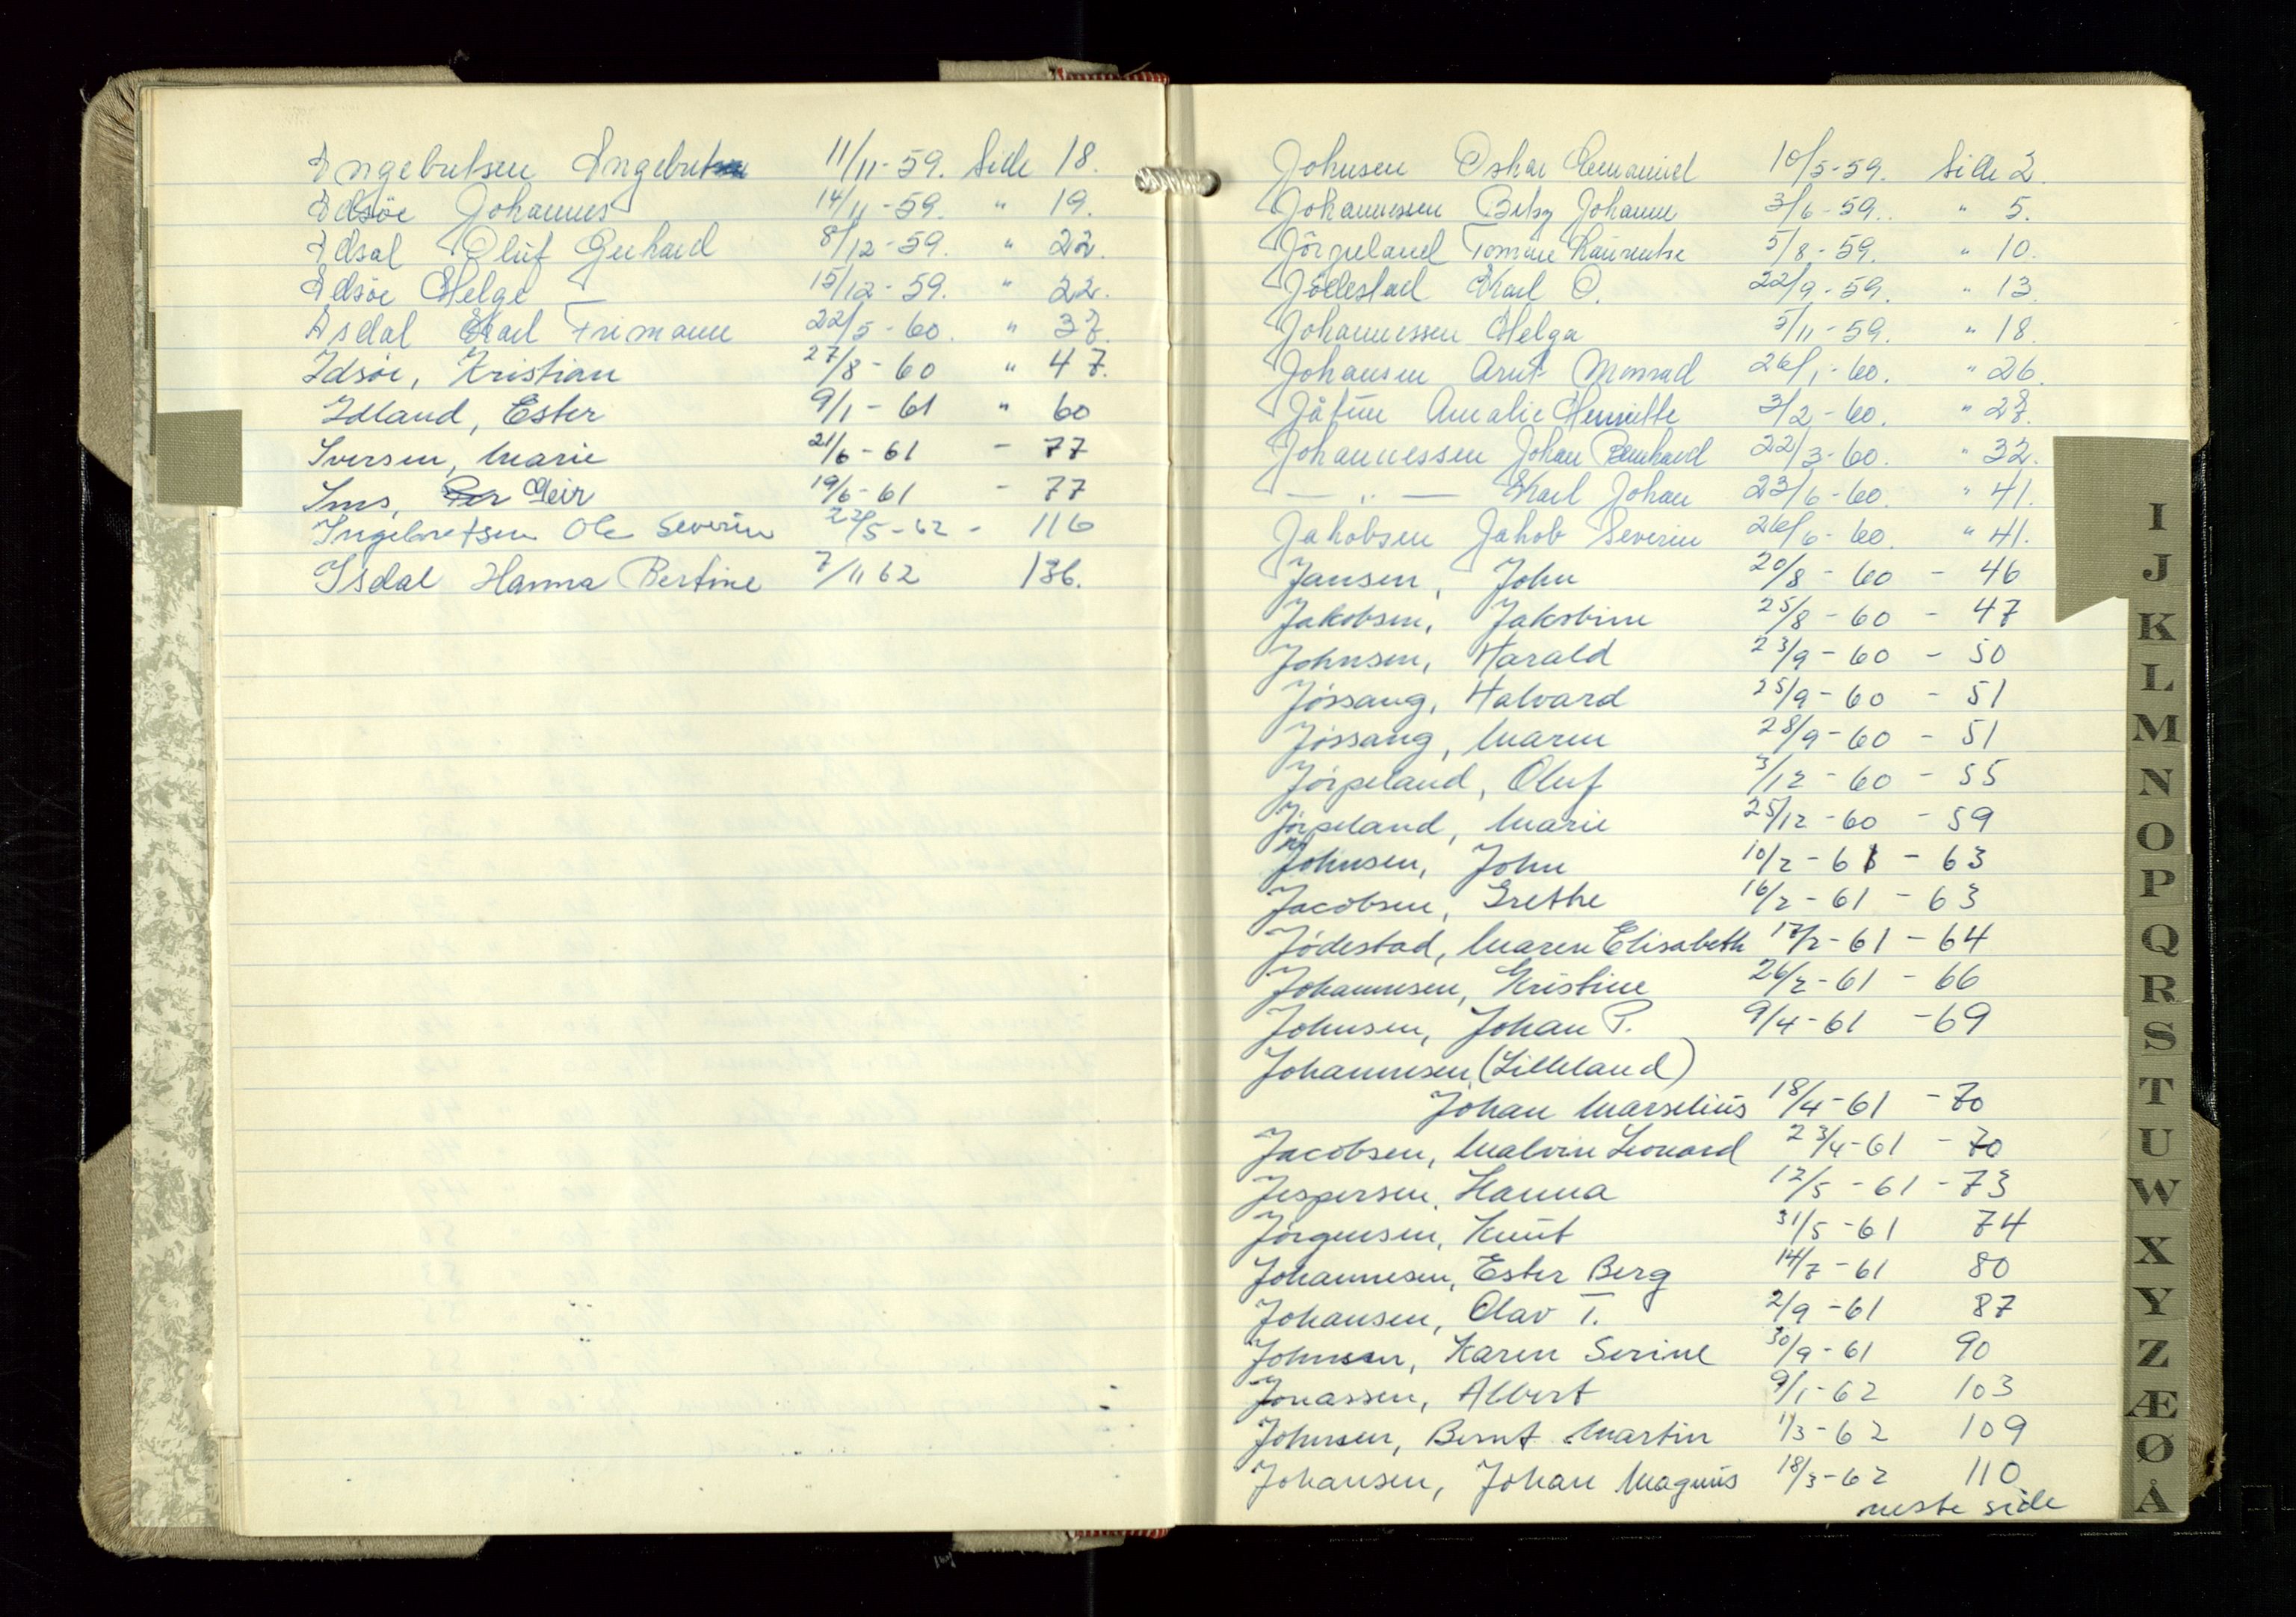 Ingebretsen Ingebret 11/11-59. Side 18.
Idsöe Johannes 14/11-59. " 19.
Idsal Oluf Gerhard 8/12-59. " 22.
Idsöe Helge 15/12-59. " 22.
Isdal Karl Frimann 22/5-60. " 37.
Idsöe, Kristian 27/8-60 " 47.
Idland, Ester 9/1-61 " 60
Iversen, Marie 21/6-61 - 77
Ims, Geir 19/6-61 - 77
Ingebretsen Ole Severin 22/5-62 - 116
Isdal Hanna Bertine 7/11 62 136.
Johnsen Oskar Emanuel 10/5-59. Side 2.
Johannessen Betzy Johanne 3/6-59. " 5.
Jörpeland Tomine Laurentse 5/8-59. " 10.
Jödestad Karl O. 22/9-59. " 13.
Johannessen Helga 5/11-59. " 18.
Johansen Arnt Monrad 26/1-60. " 26.
Jåtun Amalie Henriette 3/2-60. " 27.
Johannessen Johan Bernhard 22/3-60. " 32.
— " — Karl Johan 23/6-60. " 41.
Jakobsen Jakob Severin 26/6-60. " 41.
Jansen, John 20/8-60 - 46
Jakobsen, Jakobine 25/8-60 - 47
Johnsen, Harald 23/9-60 - 50
Jössang, Halvard 25/9-60 - 51
Jössang, Maren 28/9-60 - 51
Jörpeland, Oluf 3/12-60 - 55
Jörpeland, Marie 25/12-60 - 59
Johnsen, John 10/2-61 - 63
Jacobsen, Grethe 16/2-61 - 63
Jödestad, Maren Elisabeth 17/2-61 - 64
Johannesen, Kristine 26/2-61 - 66
Johnsen, Johan P. 9/4-61 - 69
Johannesen, (Lilleland)
Johan Marselius 18/4-61 - 70
Jacobsen, Malvin Leonard 23/4-61 - 70
Jespersen, Hanna 12/5-61 - 73
Jörgensen, Knut 31/5-61 74
Johannesen, Ester Berg 14/7-61 80
Johansen, Olav T. 2/9-61 87
Johnsen, Karen Serine 30/9-61 90
Jonassen, Albert 9/1-62 103
Johnsen, Bernt Martin 1/3-62 109
Johansen, Johan Magnus 18/3-62 110
neste side
I
J
K
L
M
N
O
P
Q
R
S
T
U
W
X
Y
Z
Æ
Ø
Å